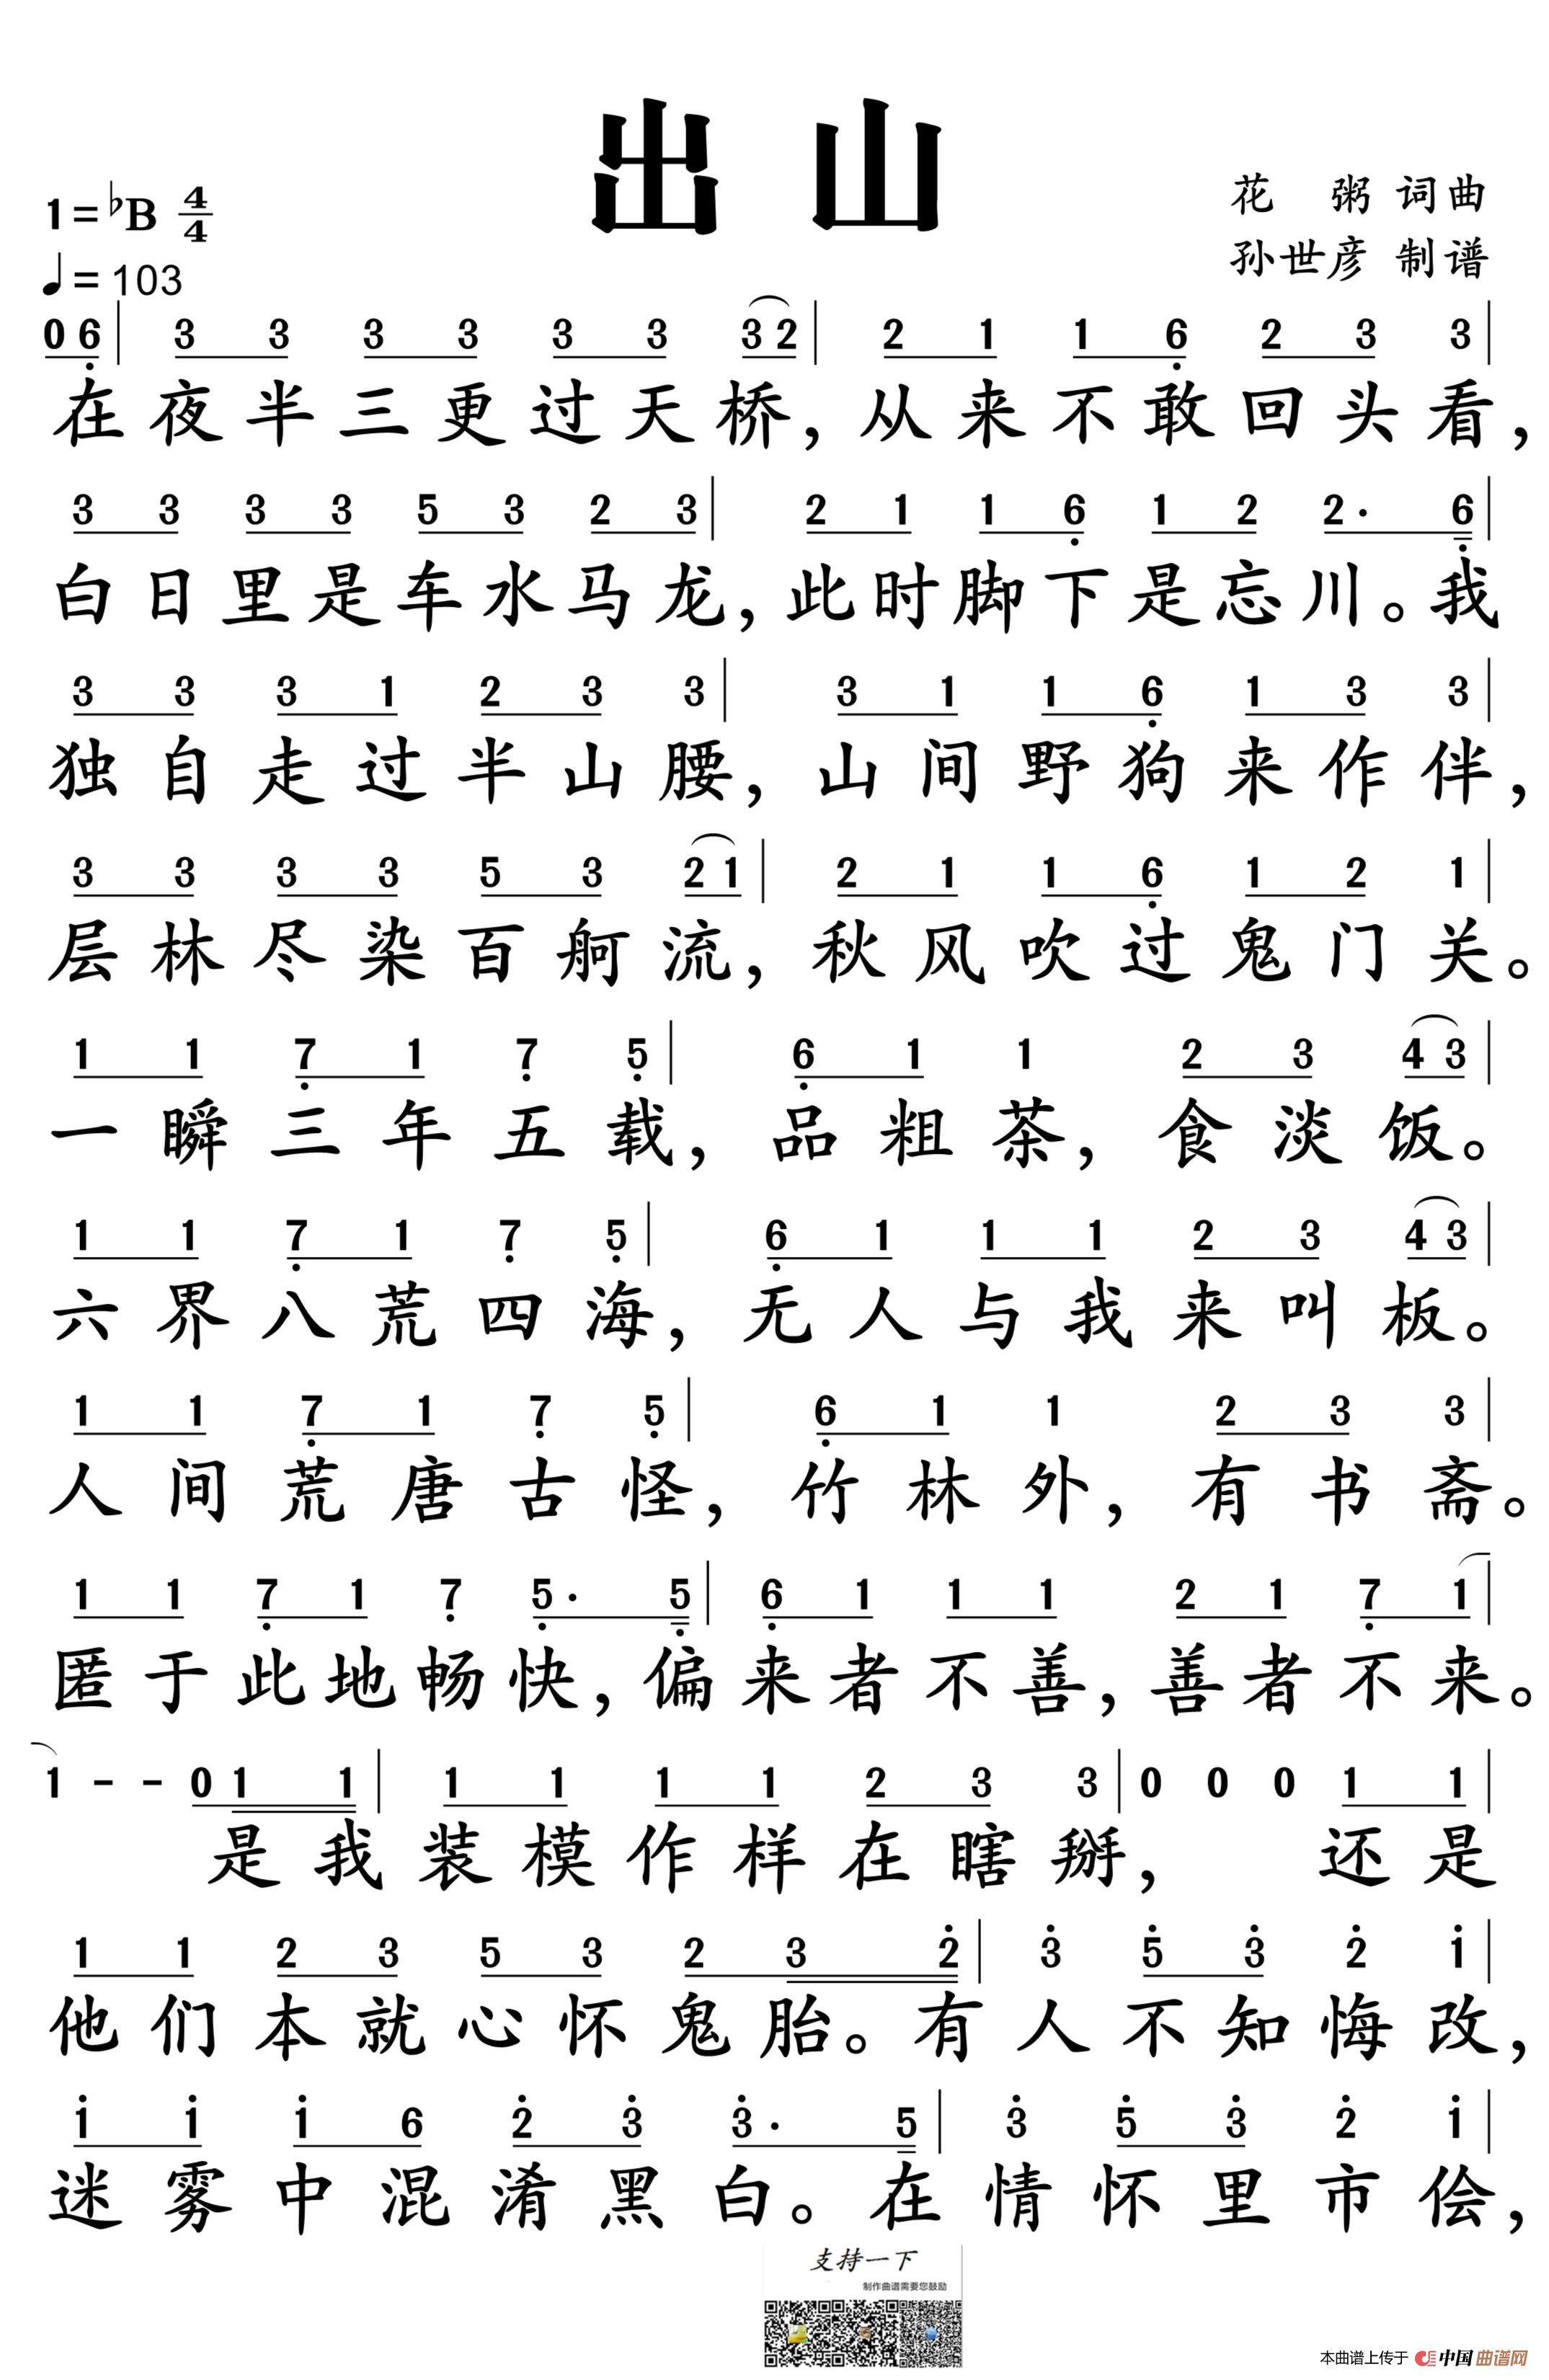 出 山
1=♭B 4/4
花 粥 词曲
孙世彦 制谱
♩=103
0 6 | 3 3 3 3 3 3 3 2 | 2 1 1 6 2 3 3 |
在夜半三更过天桥，从来不敢回头看，
3 3 3 3 5 3 2 3 | 2 1 1 6 1 2 2· 6 |
白日里是车水马龙，此时脚下是忘川。我
3 3 3 1 2 3 3 | 3 1 1 6 1 3 3 |
独自走过半山腰，山间野狗来作伴，
3 3 3 3 5 3 2 1 | 2 1 1 6 1 2 1 |
层林尽染百舸流，秋风吹过鬼门关。
1 1 7 1 7 5 | 6 1 1 2 3 4 3 |
一瞬三年五载，品粗茶，食淡饭。
1 1 7 1 7 5 | 6 1 1 1 2 3 4 3 |
六界八荒四海，无人与我来叫板。
1 1 7 1 7 5 | 6 1 1 2 3 3 |
人间荒唐古怪，竹林外，有书斋。
1 1 7 1 7 5· 5 | 6 1 1 1 2 1 7 1 |
匿于此地畅快，偏来者不善，善者不来。
1 - - 0 1 1 | 1 1 1 1 2 3 3 | 0 0 0 1 1 |
是我装模作样在瞎掰，还是
1 1 2 3 5 3 2 3 2 | 3 5 3 2 1 |
他们本就心怀鬼胎。有人不知悔改，
1 1 1 6 2 3 3· 5 | 3 5 3 2 1 |
迷雾中混淆黑白。在情怀里市侩，
支持一下
制作曲谱需要您鼓励
本曲谱上传于 中国曲谱网